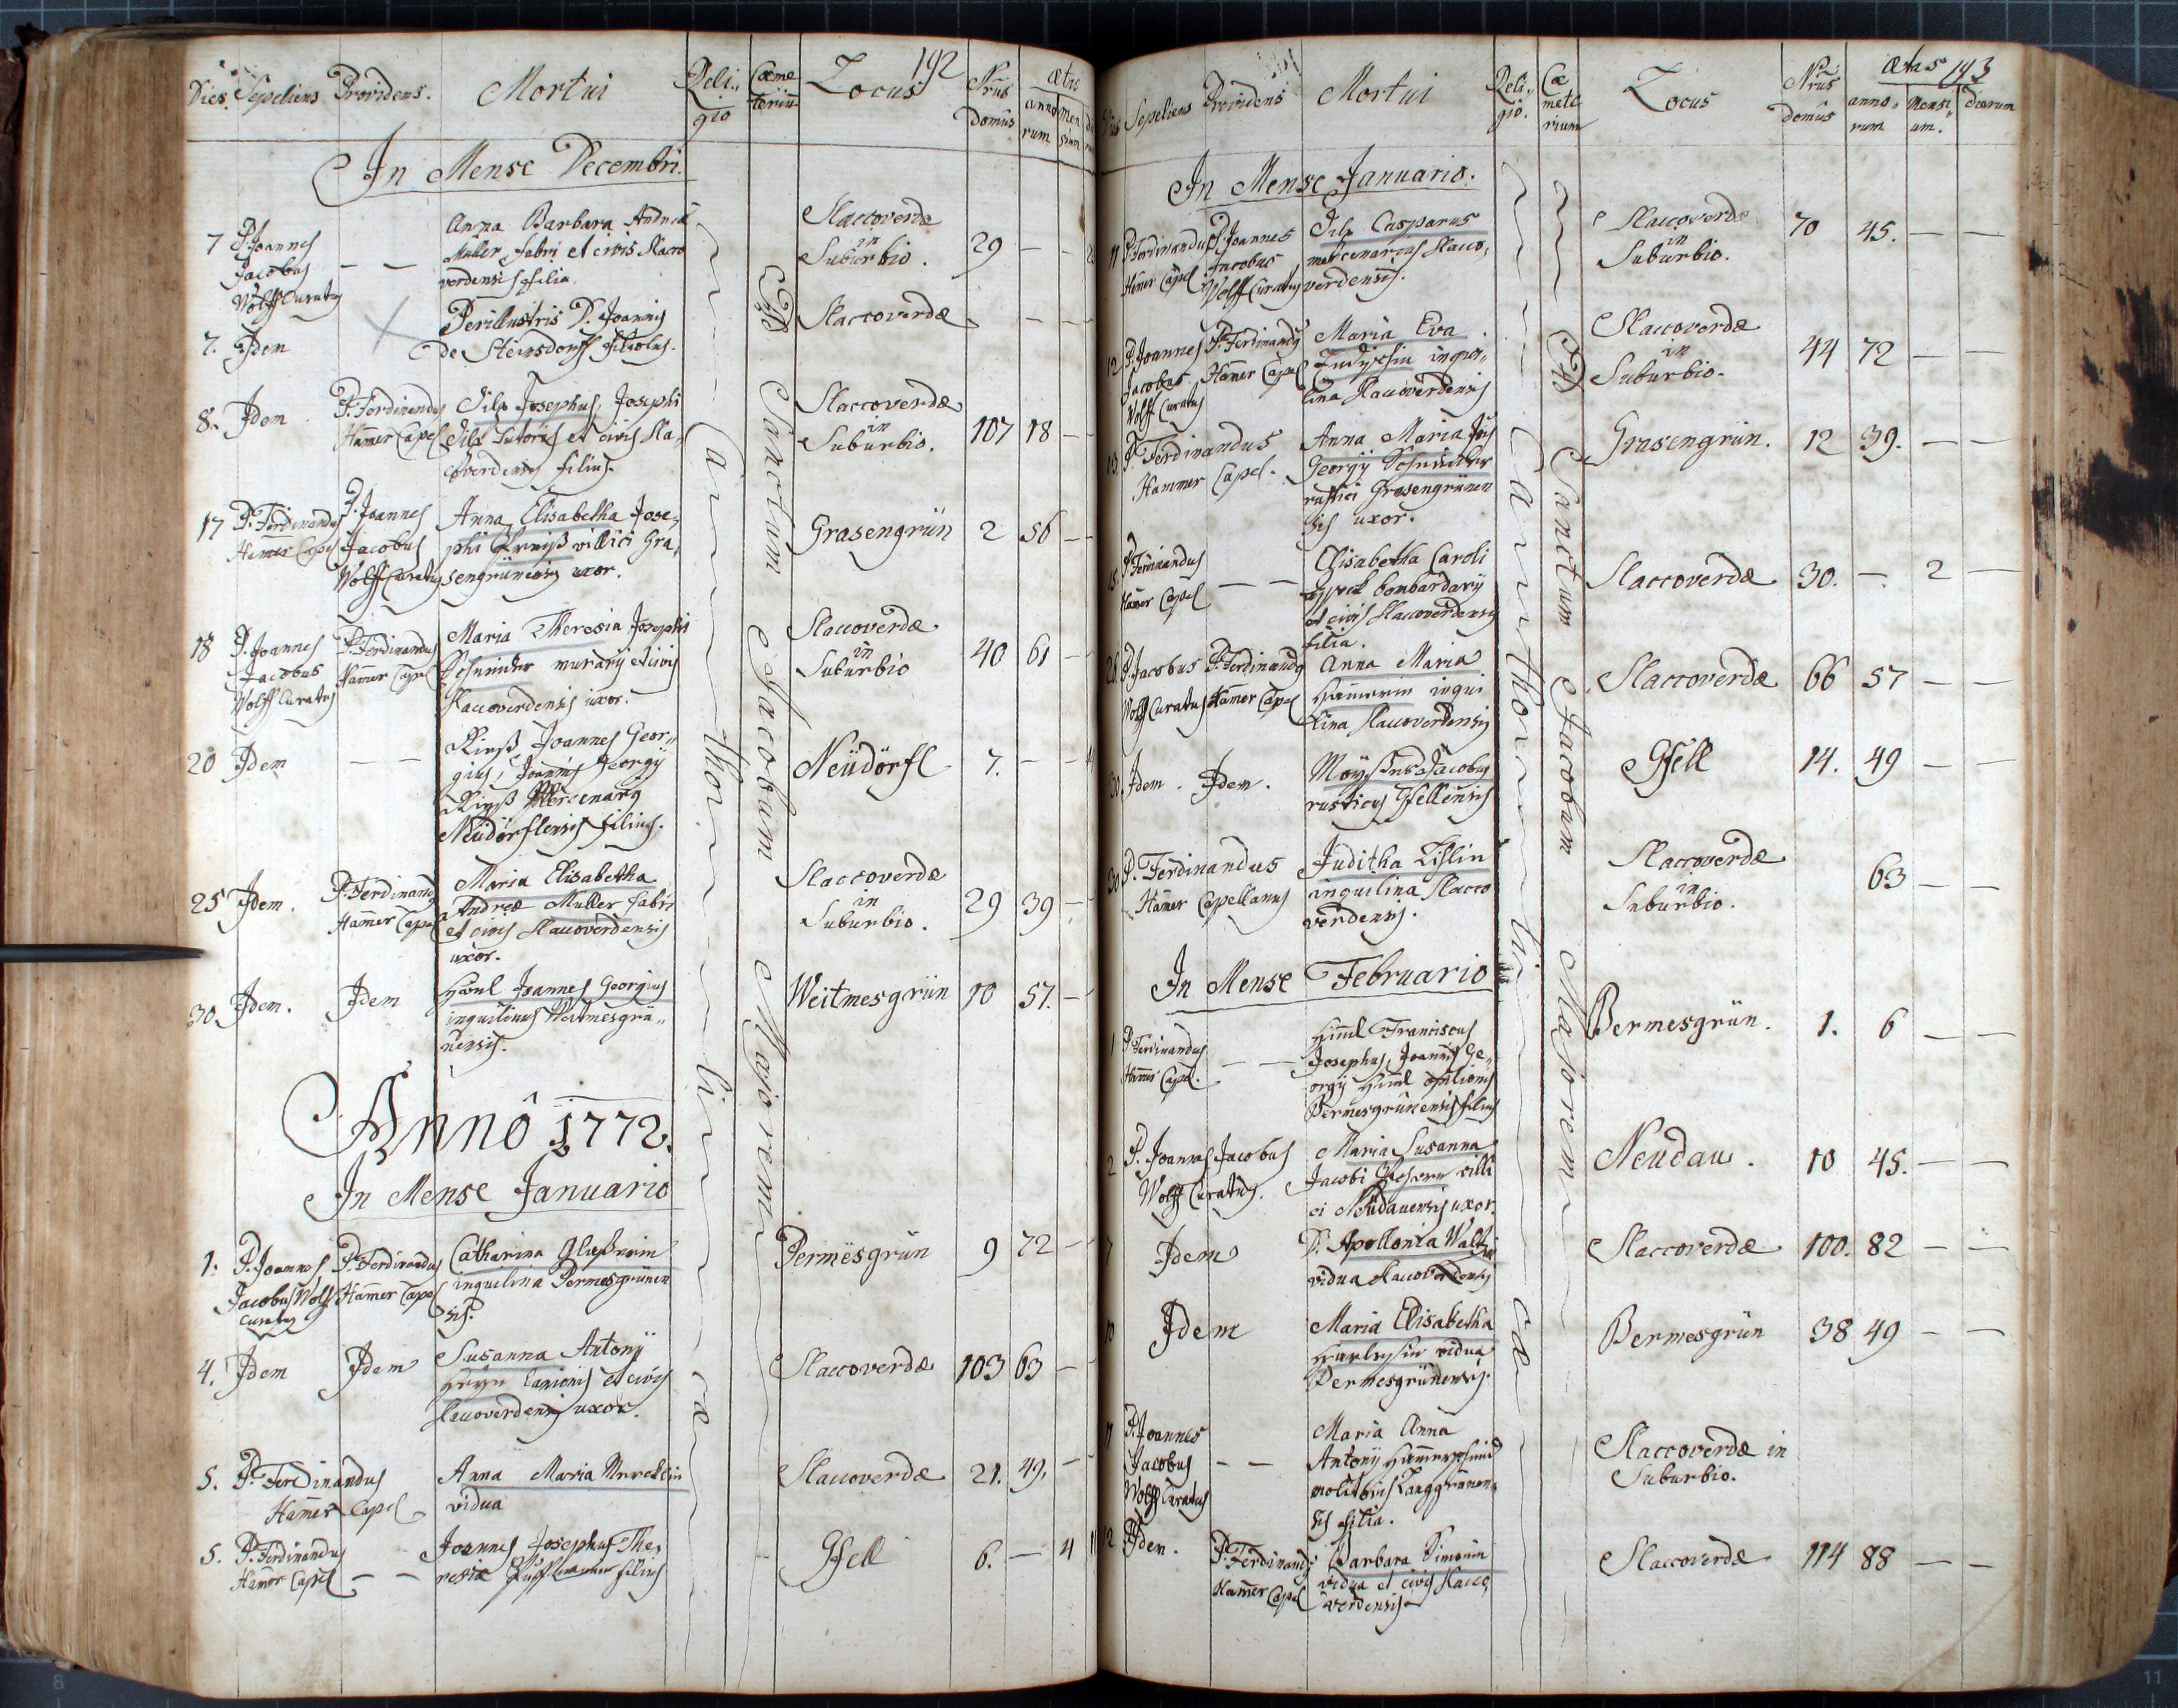 192
Dies. Sepeliens Providens. Mortui Reli„gio Cæmeterium Locus Nrus domûs ætas annorum mensium
In Mense Decembri.
7 P. Joannes Jacobus Wolff Curatus — —
Anna Barbara Andreæ
Muller fabri et civis Slacco
verdensis filia.
Slaccoverdæ
in
Suburbio. 29 — —
7. Idem
Perillustris D. Joannis
de Steinsdorff filiolus.
Slaccoverdæ — —
8. Idem P. Ferdinandus Hamer Capel
Josephus, Josephi
Sutoris et civis Sla„
coverdensis filius.
Slaccoverdæ
in
Suburbio. 107 18 —
17 P. Ferdinandus Hamer Capel P. Joannes Jacobus Wolff Curatus
Anna Elisabetha Jose„
phi villici Gra„
sengrünensis uxor.
Grasengrün 2 56 —
18 P. Joannes Jacobus Wolff Curatus P. Ferdinandus Hamer Capel
Maria Theresia Josephi
murarij et civis
Slaccoverdensis uxor.
Slaccoverdæ
in
Suburbio 40 61 —
20 Idem — —
Joannes Geor„
gius, Joannis Georgij
Mercenarij
Neüdörflensis filius.
Neüdörfl 7. —
25 Idem. P. Ferdinandus Hamer Capel
Maria Elisabetha
Andreæ Muller fabri
et civis Slaccoverdensis
uxor.
Slaccoverdæ
in
Suburbio. 29 39 —
30. Idem. Idem
Joannes Georgius
inquilinus Weitmesgrü„
nensis.
Weitmesgrün 10 57. —
Annô 1772.
In Mense Januario
1. P. Joannes Jacobus Wolff Curatus P. Ferdinandus Hamer Capel
Catharina
inquilina Permesgrünen
sis.
Permesgrün 9 72 —
4. Idem Idem
Susanna Antonij
Lanionis et civis
Slaccoverdensis uxor.
Slaccoverdæ 103 63 —
5. P. Ferdinandus
Hamer Capel
Anna Maria
vidua
Slaccoverdæ 21. 49. —
5. P. Ferdinandus Hamer Capel — —
Joannes Josephus The„
resiæ filius
Gsell 6. — 4
Catholica
Ad Sanctum Jacobum Majorem
193
Dies Sepeliens Providens Mortui Reli„gio. Cæmeterium Locus Nrus domûs ætas annorum Mensium. dierum
In Mense Januario.
11 P. Ferdinandus Hamer Capel P. Joannes Jacobus Wolff Curatus
Casparus
mercenarius Slacco„
verdensis.
Slaccoverdæ
in
Suburbio. 70 45. — —
12 P. Joannes Jacobus Wolff Curatus P. Ferdinandus Hamer Capel
Maria Eva
inqui„
lina Slaccoverdensis
Slaccoverdæ
in
Suburbio. 44 72 — —
13. P. Ferdinandus
Hammer Capel.
Anna Maria
Georgij
rustici Grasengrünen
sis uxor.
Grasengrün. 12 39. — —
15. P. Ferdinandus Hamer Capel — —
Elisabetha Caroli
bombardarij
et civis Slaccoverdensis
filia.
Slaccoverdæ 30. — 2 —
26. P. Jacobus Wolff Curatus P. Ferdinandus Hamer Capel
Anna Maria
Hamerin inqui
lina Slaccoverdensis
Slaccoverdæ 66 57 — —
30. Idem. Idem.
Jacobus
rusticus Gsellensis
Gsell 14. 49 — —
30 P. Ferdinandus
Hamer Capellanus
Juditha
inquilina Slacco
verdensis.
Slaccoverdæ
in
Suburbio. 63 — —
In Mense Februario
1 P. Ferdinandus Hamer Capel. — —
Franciscus
Josephus, Joannis Ge„
orgij opilionis
Permesgrünensis filius
Bermesgrün. 1. 6 — —
2 P. Joannes Jacobus
Wolff Curatus.
Maria Susanna
Jacobi villi
ci Neudauensis uxor.
Neudau. 10 45. — —
7 Idem
D. Apollonia
vidua Slaccoverdensis
Slaccoverdæ 100. 82 — —
10 Idem
Maria Elisabetha
vidua
Permesgrünensis.
Bermesgrün 38 49 — —
P. Joannes Jacobus Wolff Curatus — —
Maria Anna
Antonij
molitoris
sis filia.
Slaccoverdæ in
Suburbio.
12 Idem. P. Ferdinandus Hamer Capel
Barbara Simonin
vidua et civis Slacco„
verdensis
Slaccoverdæ 114 88 — —
Catholica
Ad Sanctum Jacobum Majorem
8
11